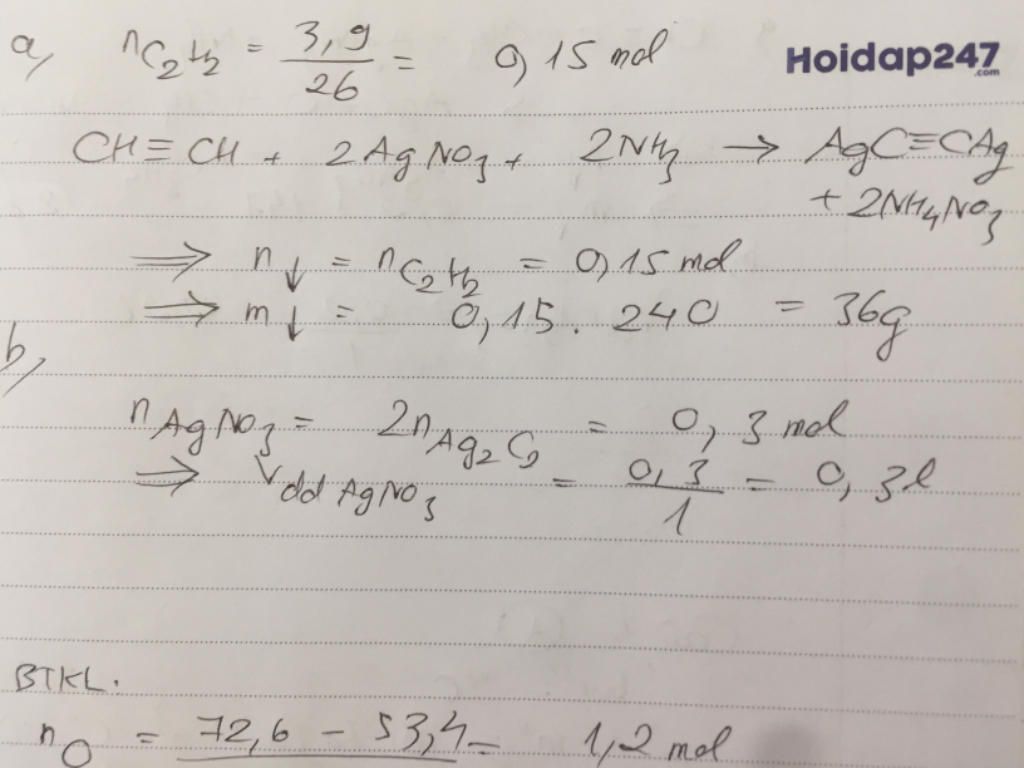 a, nC2H2 = 3,9/26 = 0,15 mol
Hoidap247
.com
CH≡CH + 2AgNO3 + 2NH3 → AgC≡CAg
+ 2NH4NO3
⇒ n↓ = nC2H2 = 0,15 mol
⇒ m↓ = 0,15 . 240 = 36g
b,
nAgNO3 = 2nAg2C2 = 0,3 mol
⇒ Vdd AgNO3 = 0,3/1 = 0,3l
BTKL.
nO = 72,6 - 53,4 = 1,2 mol